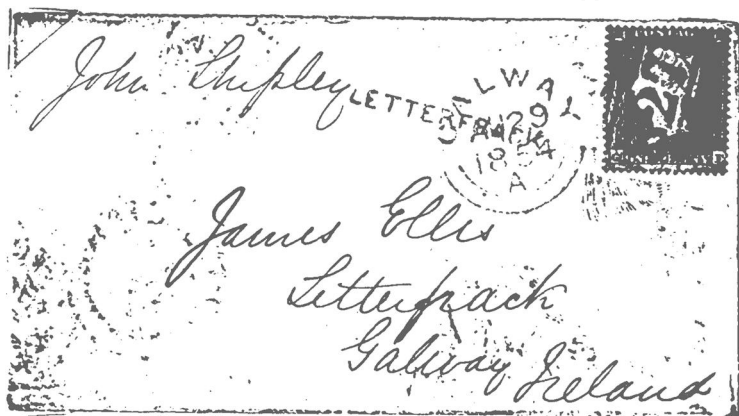 John Shipley
LETTERFRACK
GALWAY
29
1854
A
POSTAGE
ONE PENNY
James Ellis
Letterfrack
Galway Ireland